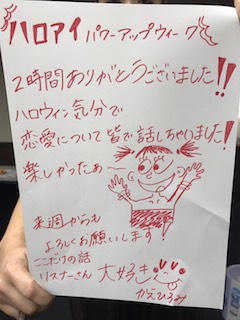 ハロアイ パワーアップウィーク
2時間ありがとうございました!!
ハロウィン気分で
恋愛について皆で話しちゃいました!
楽しかったぁ
来週からも
よろしくお願いします
ここだけの話
リスナーさん 大好き
かえひろみ